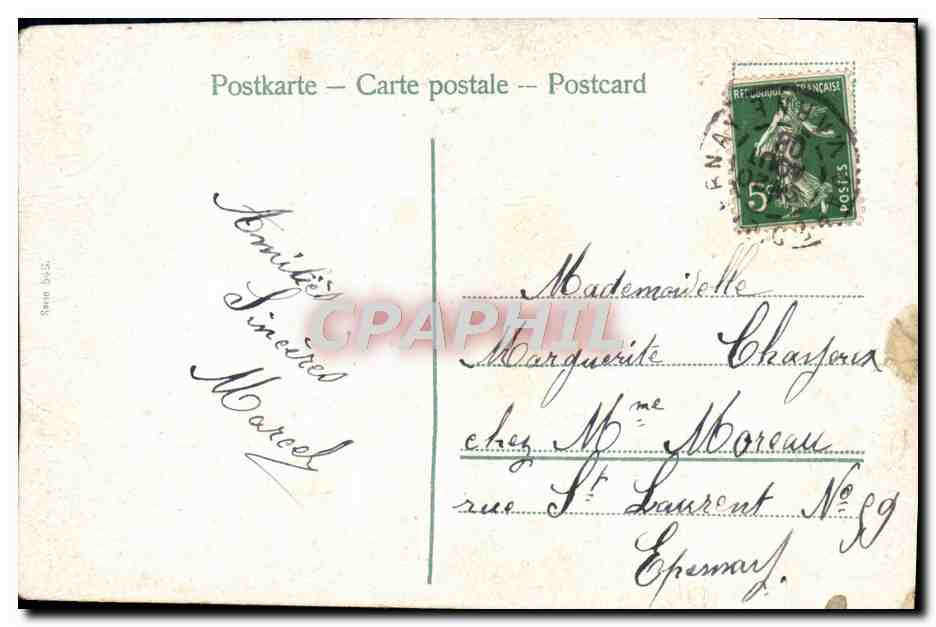 Postkarte – Carte postale -- Postcard
REPUBLIQUE FRANÇAISE
5
POSTES
Amitiés
Sincères
Marcel
CPAPHIL
Mademoiselle
Marguerite
chez Mme Moreau
rue St Laurent No 59
Epernay.